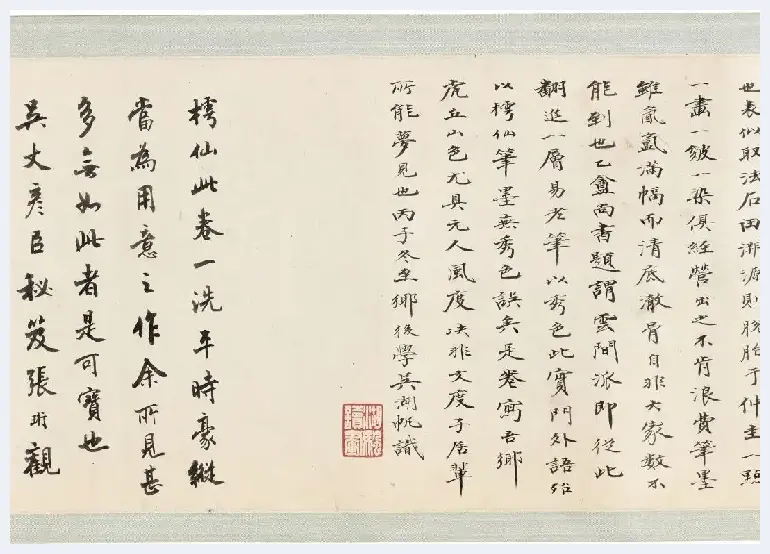 也表似取法石田淵源則脫胎于仲圭一點
一畫一皴一染俱經營出之不肯浪費筆墨
雖氤氳滿幅而清底澈骨自非大家數不
能到也乙盦尚書題謂雲間派即從此
翻進一層易老筆以秀色此實門外語殆
以樗仙筆墨無秀色誤矣是卷寫吾鄉
虎丘山色尤具元人風度決非文度子居輩
所能夢見也丙子冬至鄉後學吳湖帆識
樗仙此卷一洗平時豪縱
當為用意之作余所見甚
多無如此者是可寶也
吳丈彥臣秘笈張珩觀